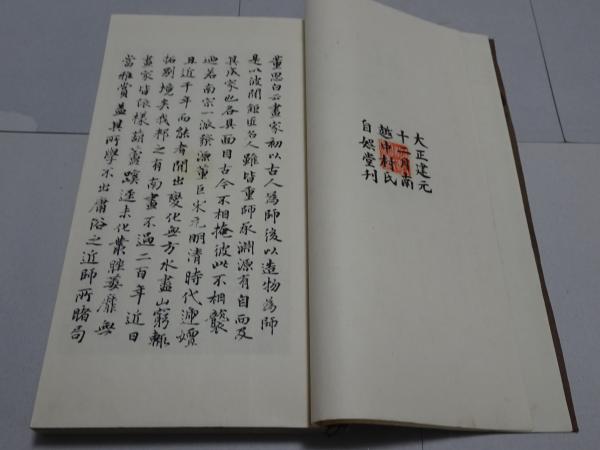 大正建元
十二月南
越中村氏
自娯堂刊
董思白云畫家初以古人為師後以造物為師
是以彼間鉅匠名人雖皆重師承淵源有自而及
其成家也各具面目古今不相掩彼此不相襲
迺若南宗一派發源董巨宋元明清時代遞嬗
且近千年而能者開出變化無方水盡山窮輒
拓別境矣我邦之有南畫不過二百年近日
畫家皆依樣葫蘆蹊迳未化叢脞萎靡無
當雅賞蓋其所學不出庸俗之近師所睹局